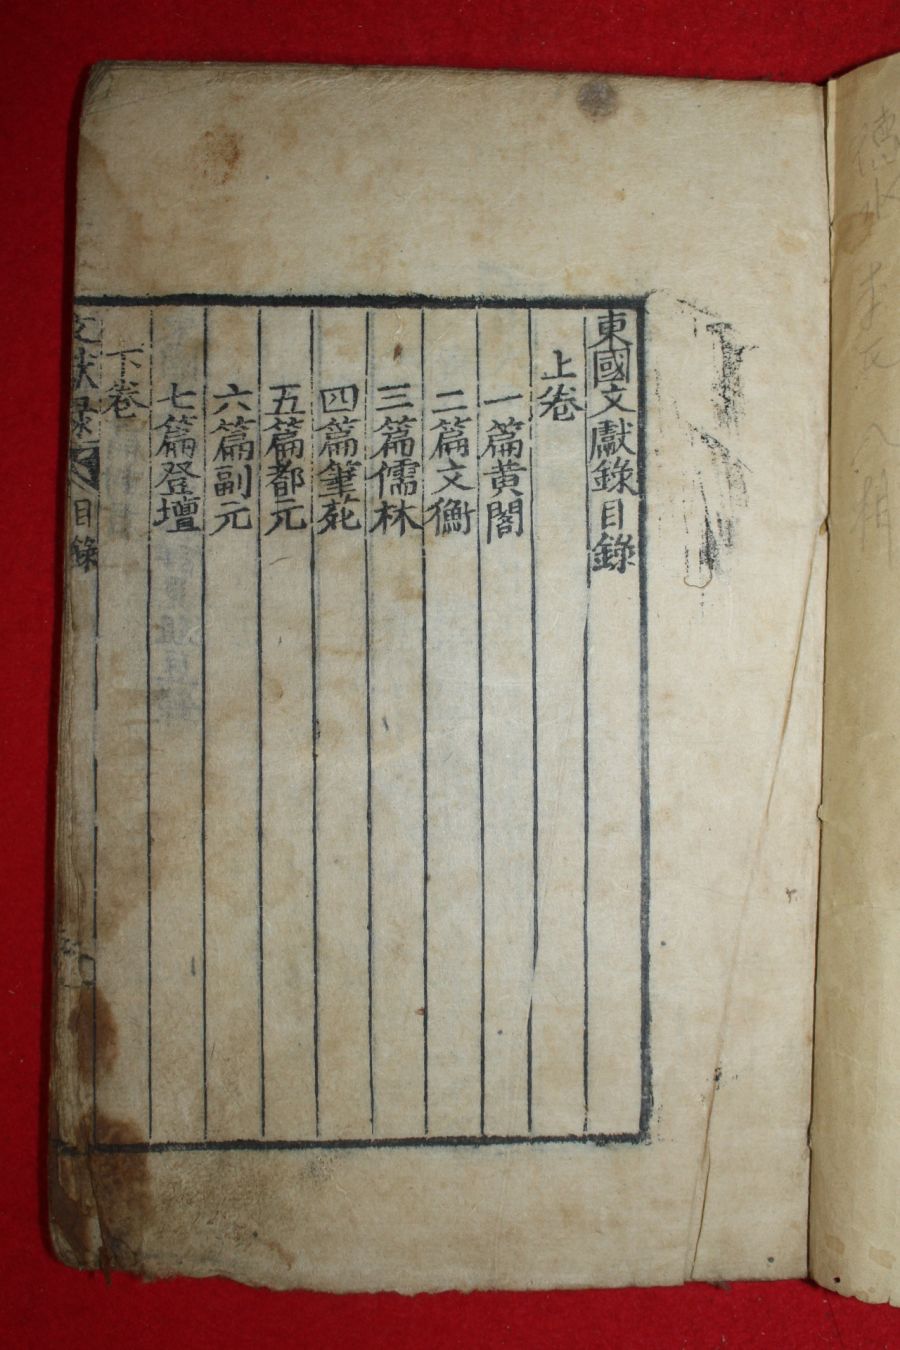 東國文獻錄目錄
上卷
一篇黃閣
二篇文衡
三篇儒林
四篇筆苑
五篇都元
六篇副元
七篇登壇
下卷
文獻錄 目錄